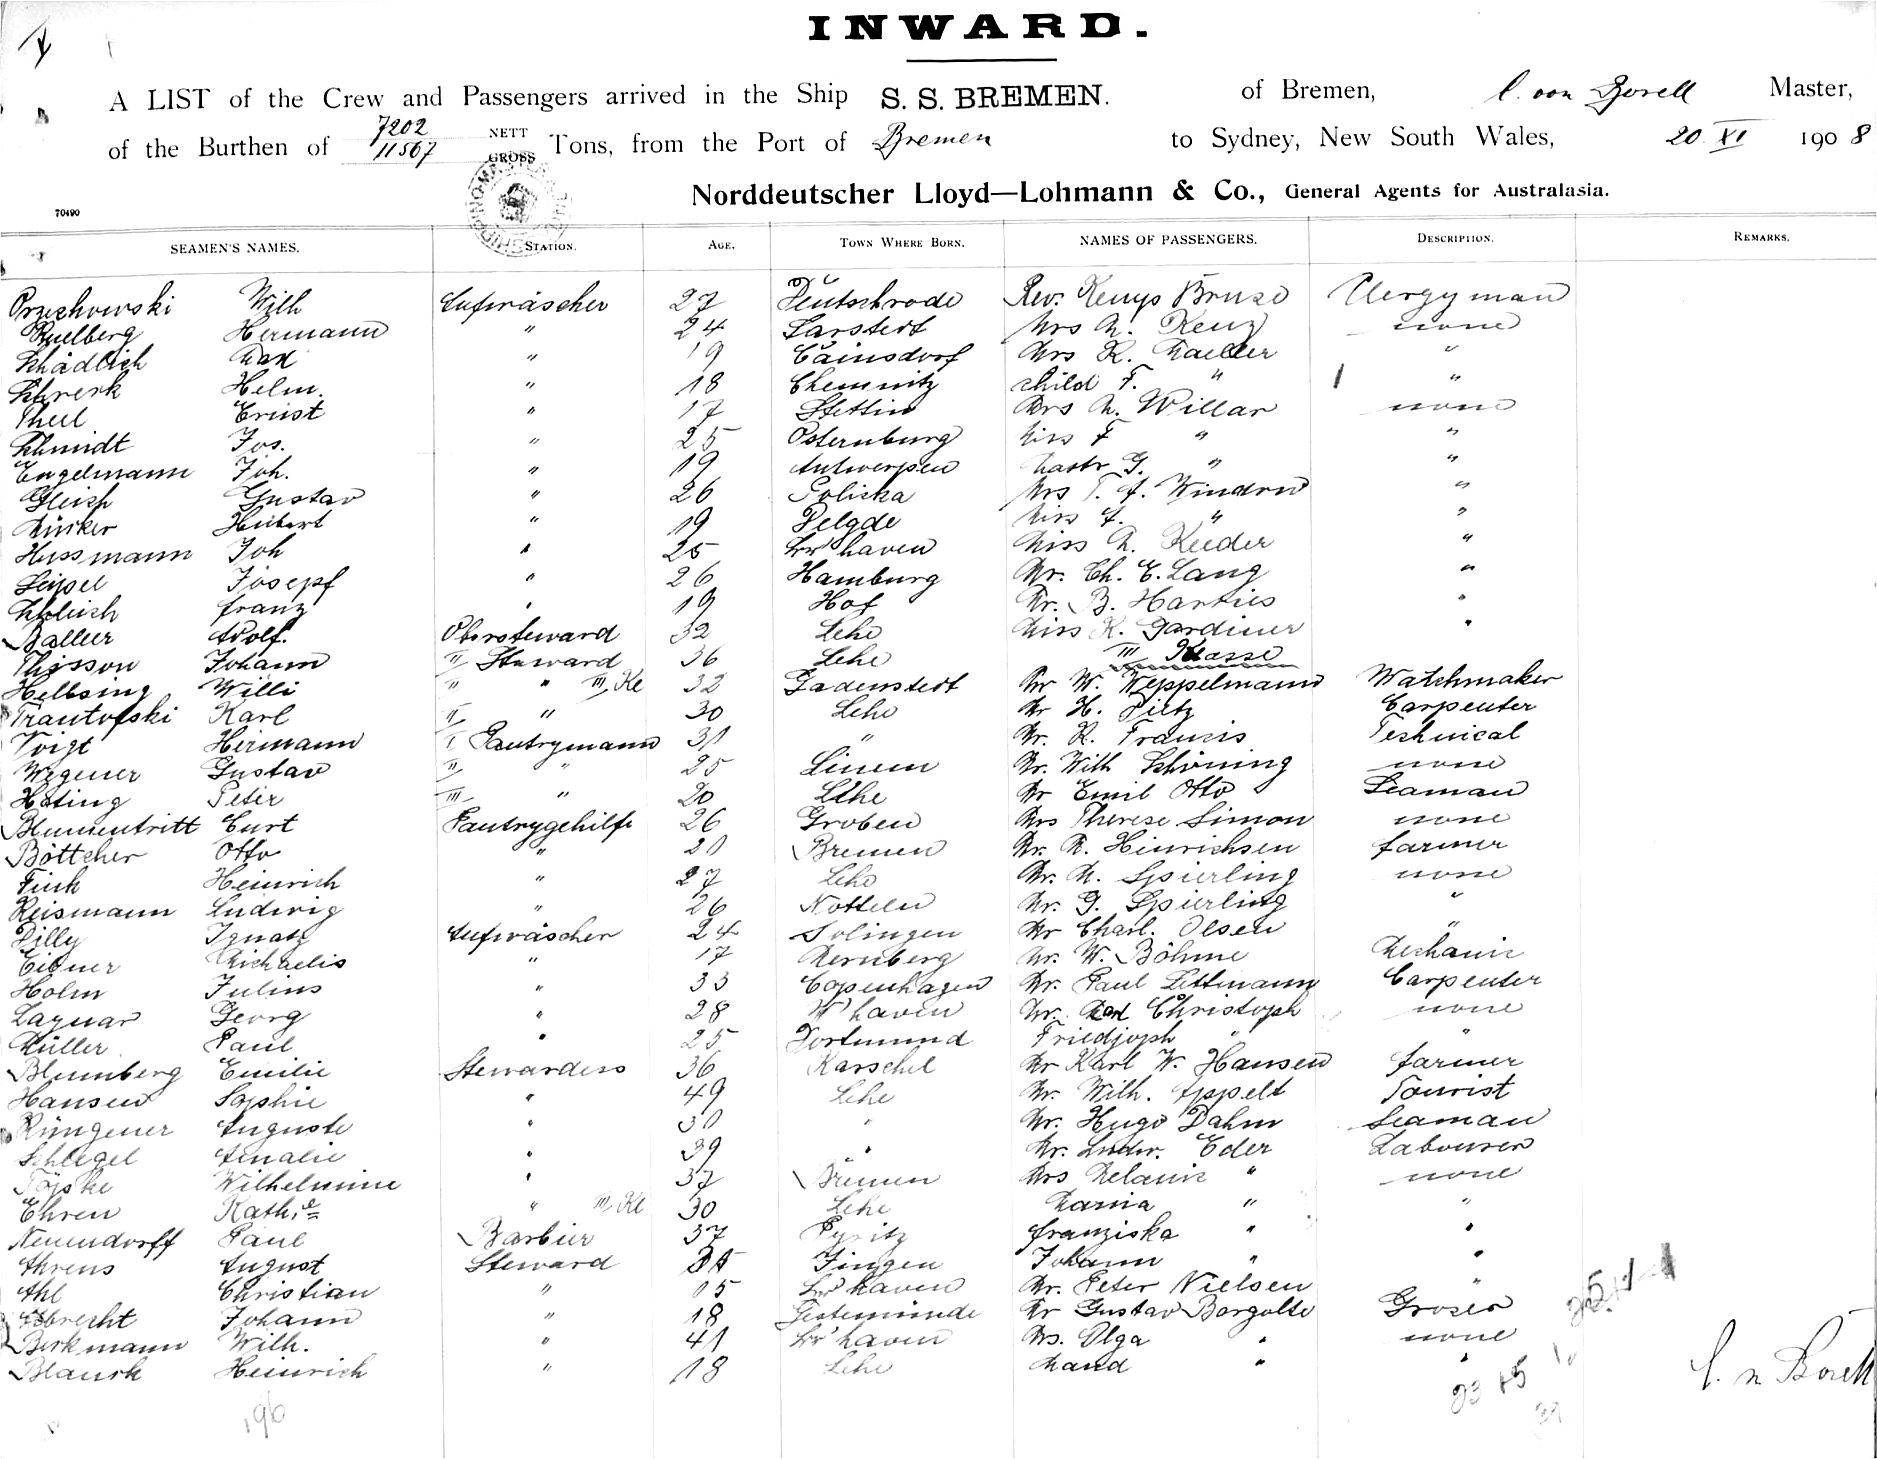 INWARD.
A LIST of the Crew and Passengers arrived in the Ship S. S. BREMEN. of Bremen, C. von Borell Master,
of the Burthen of 7202 11567 NETT GROSS Tons, from the Port of Bremen to Sydney, New South Wales, 20 XI 1908
Norddeutscher Lloyd—Lohmann & Co., General Agents for Australasia.
70490
SEAMEN'S NAMES. STATION. AGE. TOWN WHERE BORN. NAMES OF PASSENGERS. DESCRIPTION. REMARKS.
Przechowski Wilh Aufwäscher 27 Deutschrode Rev. Kenys Bruse Clergyman
Ruelberg Hermann " 24 Sarstedt Mrs M. none
Schädlich Max " 19 Cainsdorf Mrs K. "
Schrerk Helm. " 18 Chemnitz child F. " "
Theil Ernst " 17 Stettin Mrs M. Willar none
Schmidt Jos. " 25 Osternburg Miss F " "
Engelmann Joh. " 19 Antwerpen Mastr G. " "
Gustav " 26 Policka Mrs T. A. Windrw "
Münker Hubert " 19 Pelgde Miss A. " "
Hussmann Joh " 25 Br'haven Miss M. Reeder "
Seipel Josepf " 26 Hamburg Mr. Ch. E. Lang "
Schleich Franz " 19 Hof Mr. B. Harries "
Balleer Adolf. Obersteward 32 Lehe Miss K. Gardiner "
Thosson Johann II Steward 36 Lehe III Klasse
Hellsing Willi II " III Kl 32 Gadenstedt Mr W. Weppelmann Watchmaker
Trautofski Karl II " 30 Lehe Mr H. Pietz Carpenter
Voigt Hermann I Pantrymann 31 " Mr. R. Francis Technical
Wegener Gustav II " 25 Linem Mr. Wilh Schöning none
Hoting Peter III " 20 Lehe Mr Emil Otto Seaman
Blumentritt Curt Pantrygehilfe 26 Groben Mrs Therese Simon none
Böttcher Otto " 21 Bremen Mr. R. Hinrichsen farmer
Fink Heinrich " 27 Lehe Mr. M. Spierling none
Reismann Ludwig " 26 Notteln Mr. G. Spierling "
Dilly Ignatz Aufwäscher 24 Solingen Mr Charl. Olsen "
Eibner Michaelis " 17 Mernberg Mr. W. Böhme Mechanic
Holm Julius " 33 Copenhagen Mr. Paul Littmann Carpenter
Laquar Georg " 28 W'haven Mr. Karl Christoph none
Müller Paul " 25 Dortmund Friedjoph " "
Blumberg Emilie Stewardess 36 Karschel Mr Karl W. Hansen farmer
Hansen Sophie " 49 Lehe Mr. Wilh. Appelt Tourist
Rüngener Auguste " 30 " Mr. Hugo Dahm Seaman
Schlegel Amalie " 39 " Mr. Ludw. Eder Labourer
Wilhelmine " 37 Bremen Mrs Melanie " none
Ehren Kath. " III Kl 30 Lehe Maria " "
Neuendorff Paul Barbier 37 Pyritz Franziska " "
Ahrens August Steward 31 Jingen Johann " "
Ahl Christian " 15 Br'haven Mr. Peter Nielsen "
Albrecht Johann " 18 Geestemünde Mr Gustav Borgolte Grocer
Berkmann Wilh. " 41 Br'haven Mrs. Olga " none
Blansk Heinrich " 18 Lehe Maud " "
C. v. Borell
196